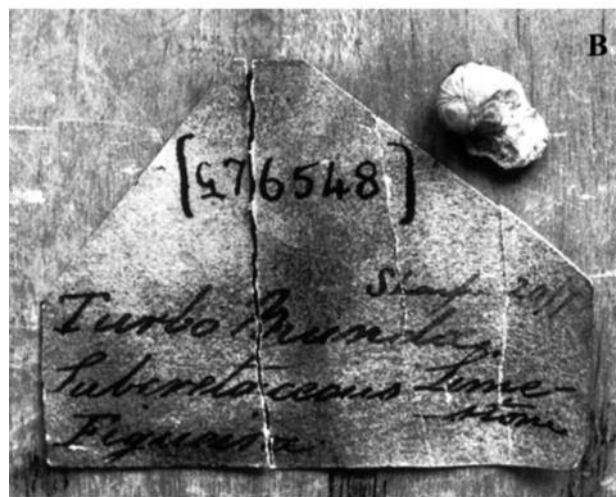 B
[G76548]
Sharpe
Turbo Munda
Subcretaceous Lime-
stone
Figueira